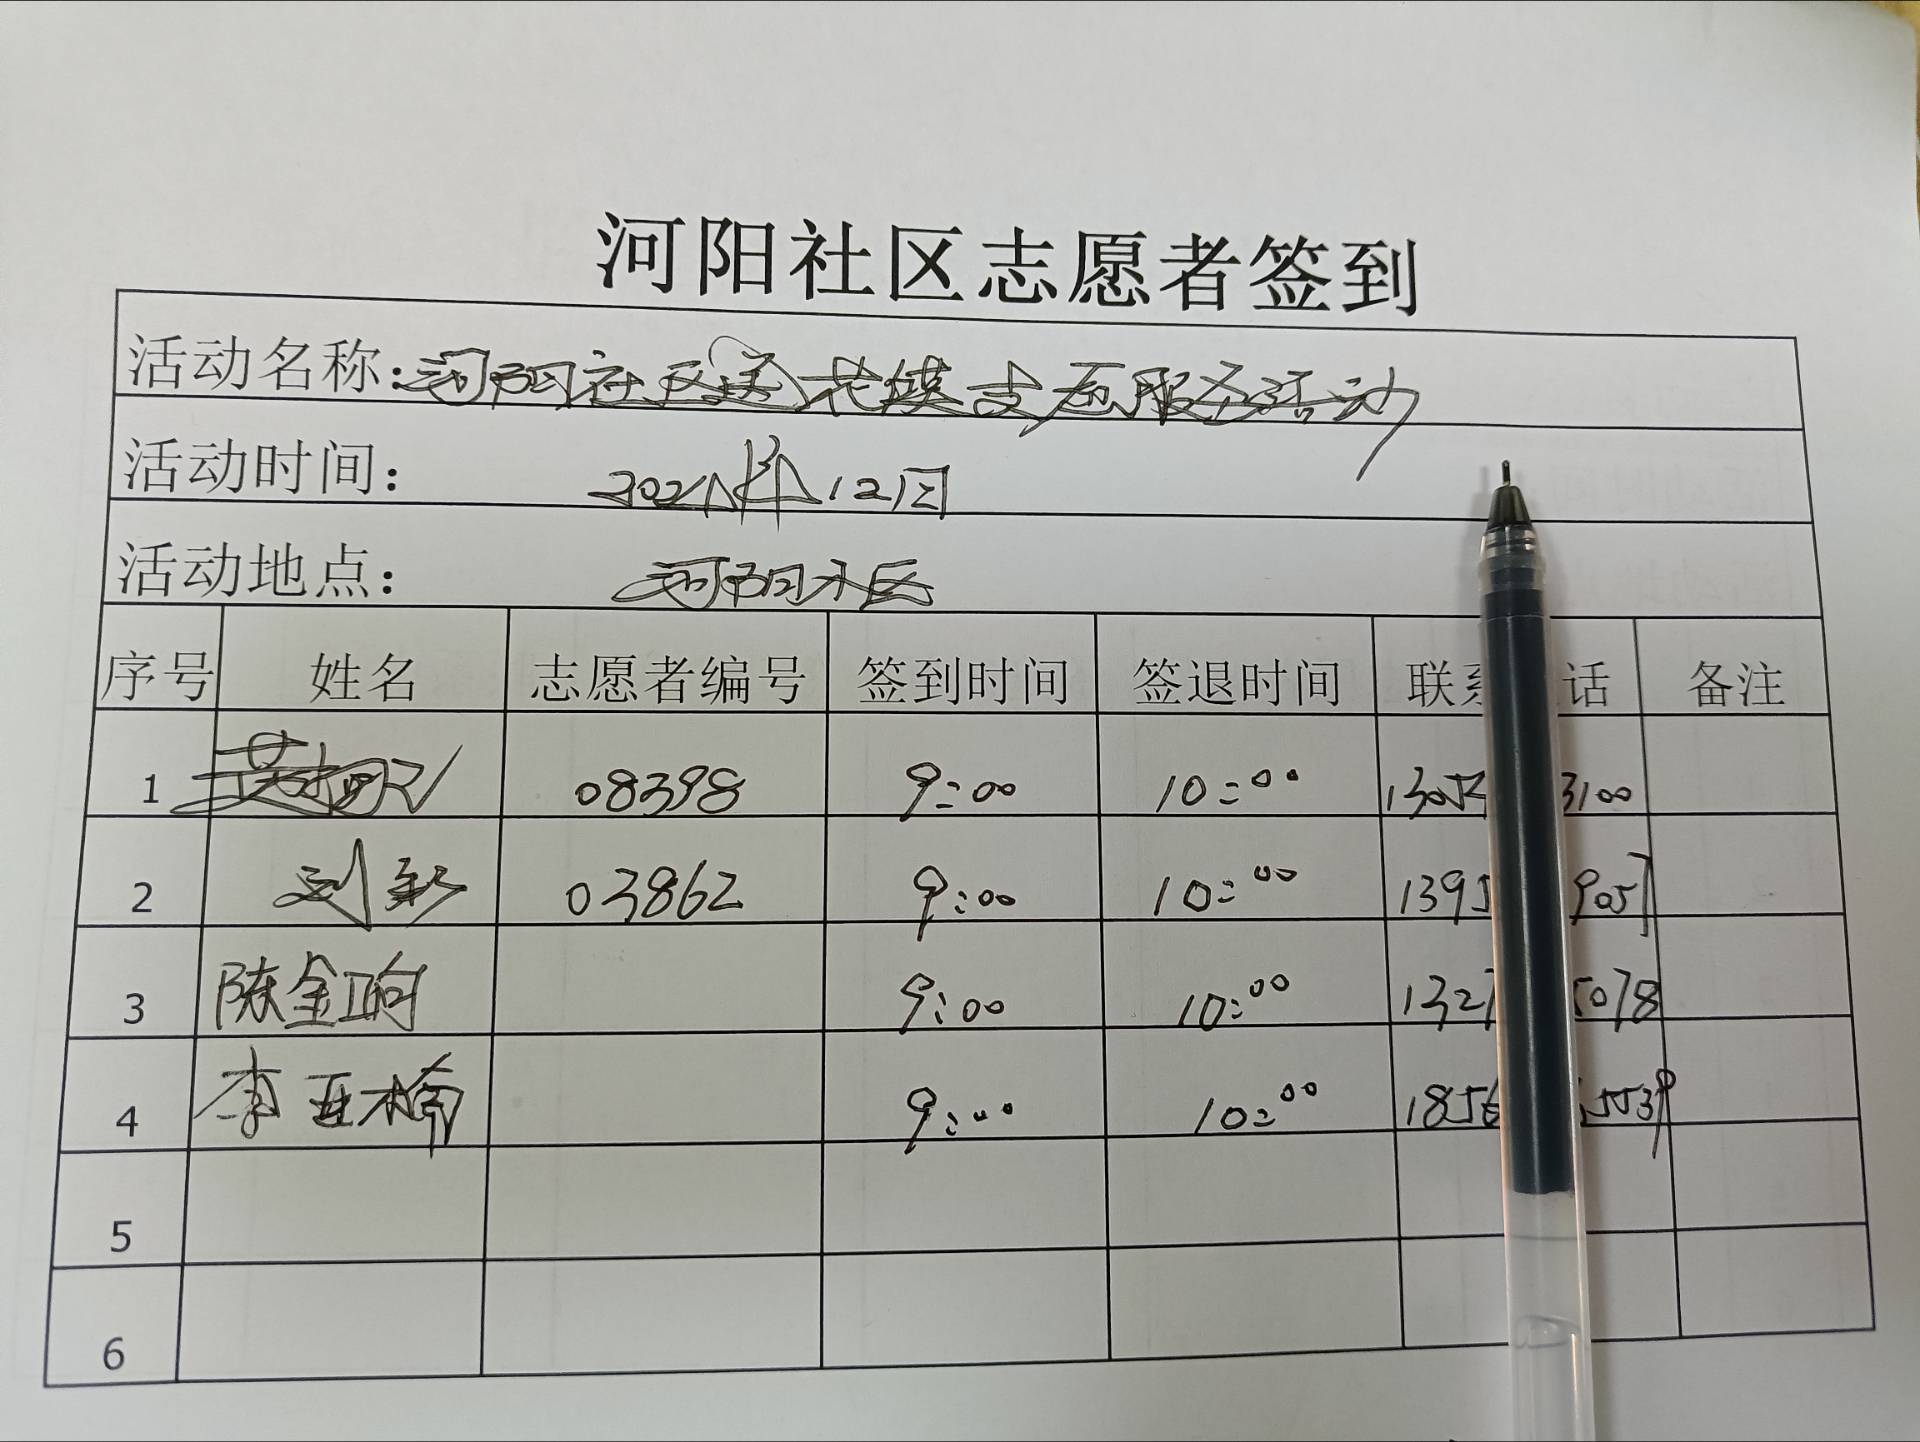 河阳社区志愿者签到
活动名称：河阳社区送花馍志愿服务活动
活动时间：12日
活动地点：河阳小区
序号 姓名 志愿者编号 签到时间 签退时间 联系 话 备注
1 08398 9:00 10:00 1305 3100
2 刘彩 03862 9:00 10:00 1395 9057
3 陈金响 9:00 10:00 1327 5078
4 李亚楠 9:00 10:00 1856 5539
5
6